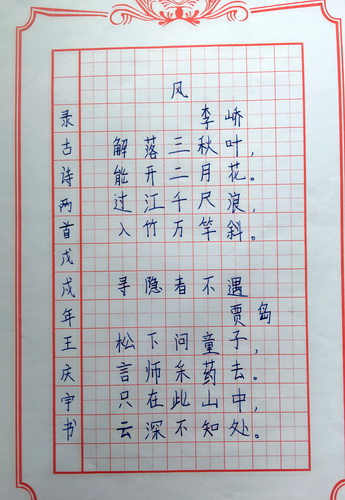 风
李峤
解落三秋叶，
能开二月花。
过江千尺浪，
入竹万竿斜。
寻隐者不遇
贾岛
松下问童子，
言师采药去。
只在此山中，
云深不知处。
录古诗两首戊戌年王庆宇书